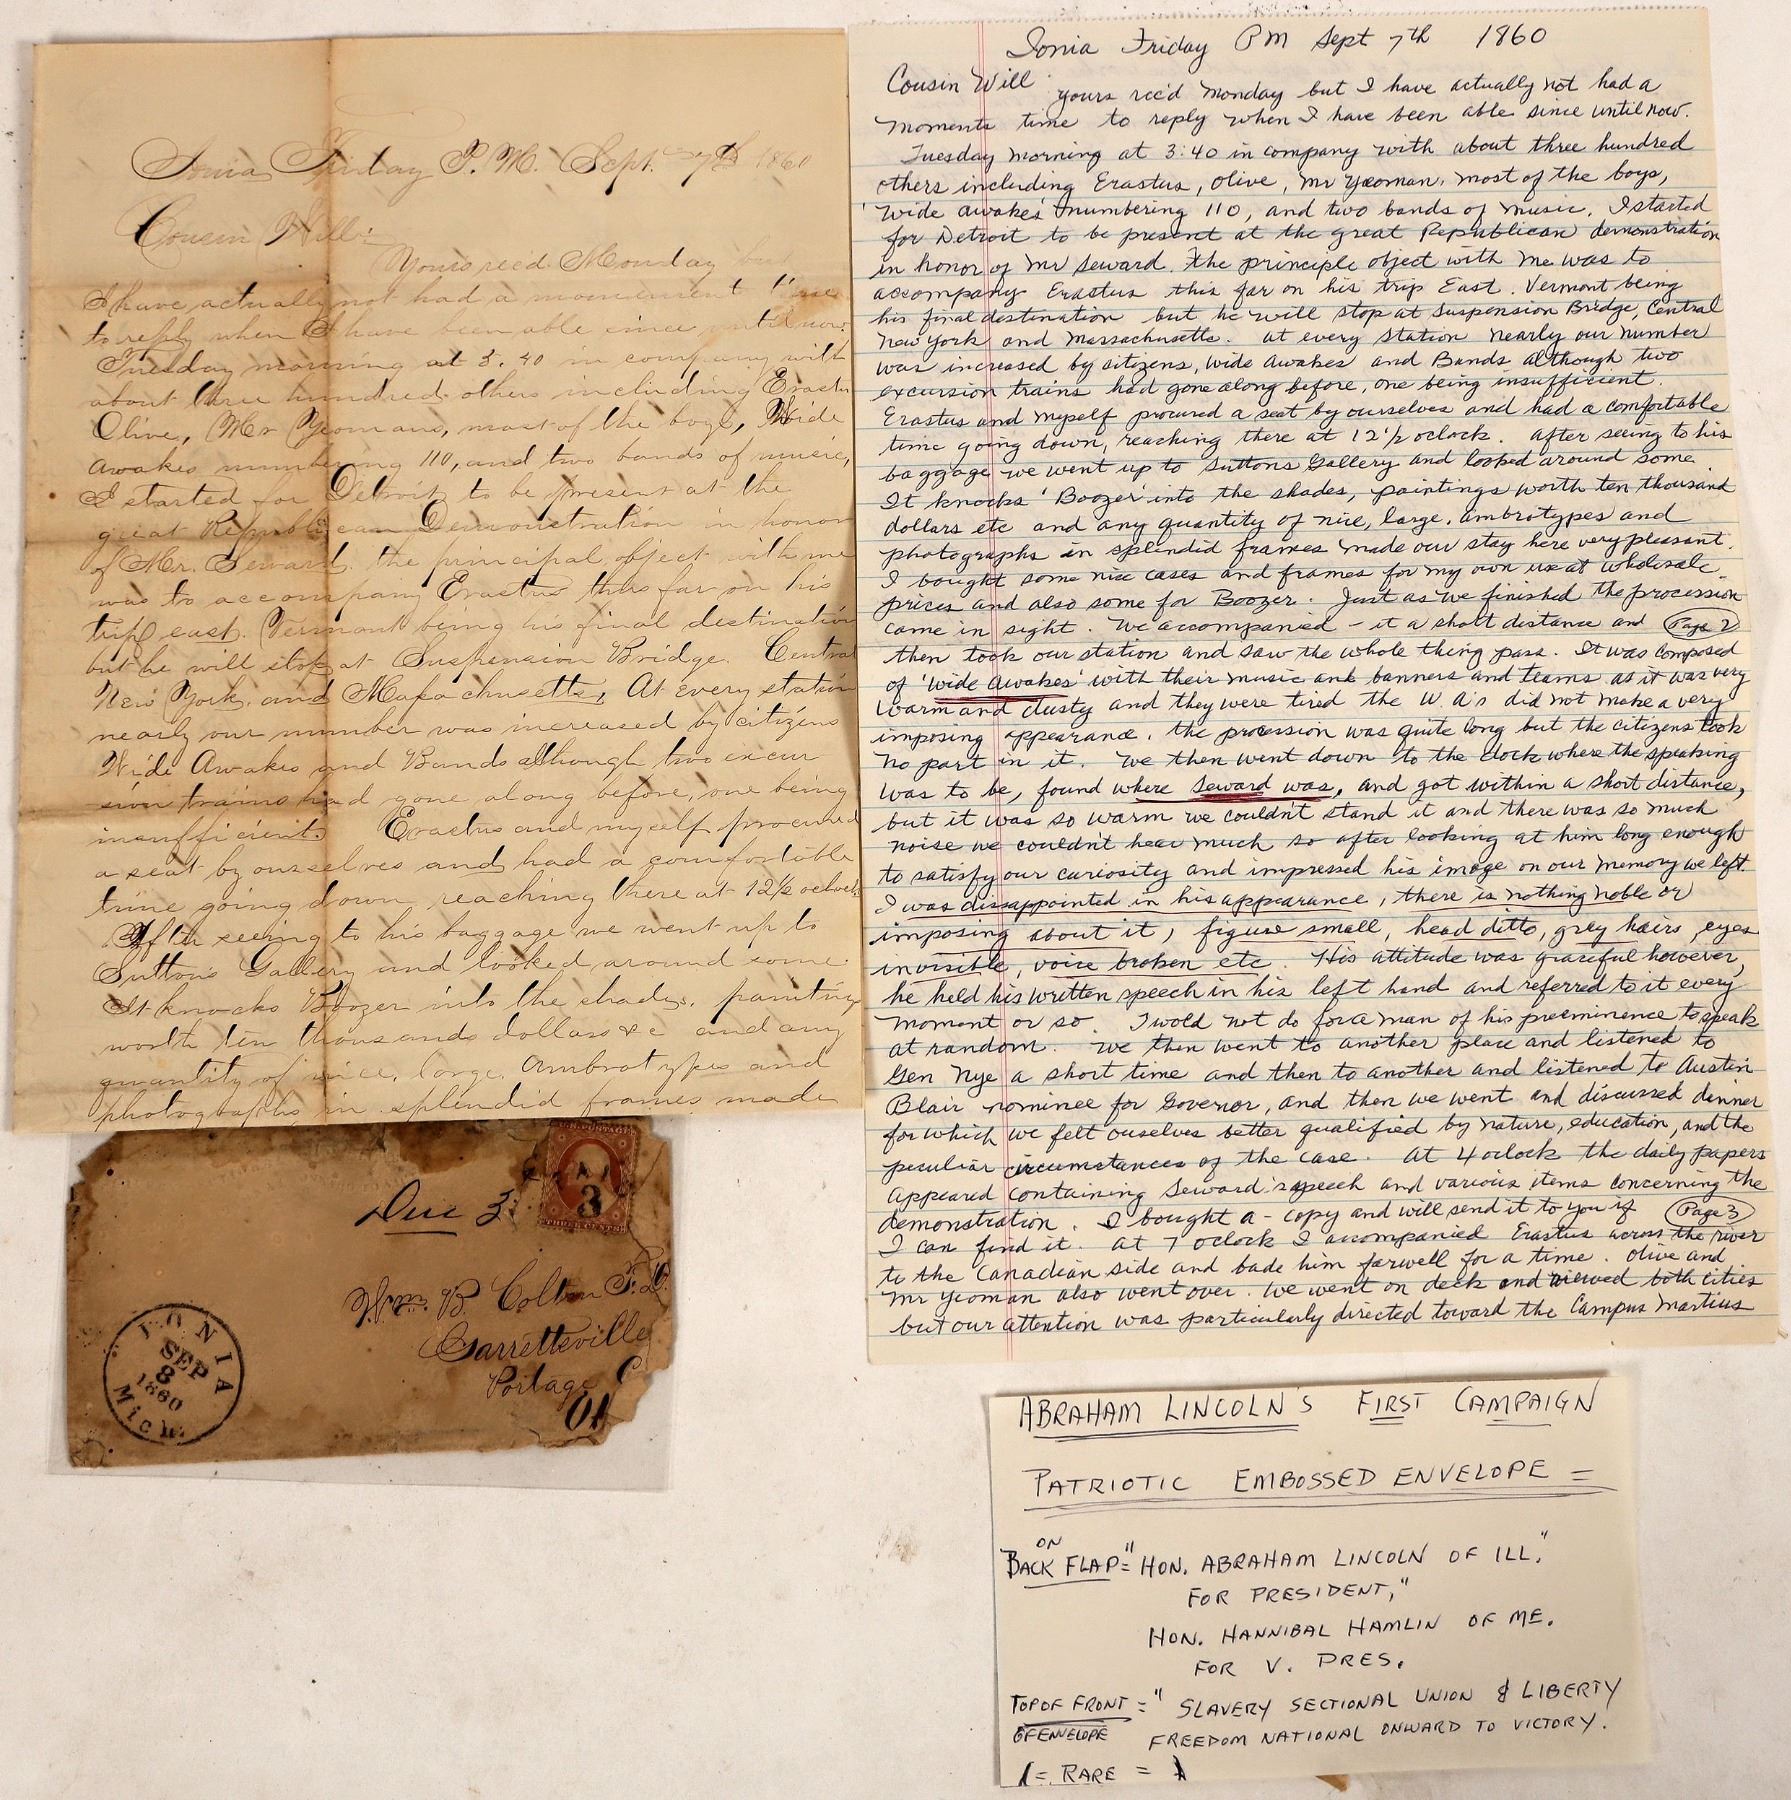 Ionia Friday P.M. Sept. 7th 1860
Cousin Will:
Yours recd. Monday but
I have actually not had a momement time
to reply when I have been able since until now.
Tuesday morning at 3.40 in company with
about three hundred others including Erastus
Olive, Mr Yeomans, most of the boys, Wide
Awakes numbering 110, and two bands of music,
I started for Detroit to be present at the
great Republican Demonstration in honor
of Mr. Seward. the principal object with me
was to accompany Erastus thus far on his
trip east. Vermont being his final destination
but he will stop at Suspension Bridge. Central
New York, and Massachusetts, At every station
nearly our number was increased by citizens
Wide Awakes and Bands although two excur
sion trains had gone along before, one being
insufficient. Erastus and myself procured
a seat by ourselves and had a comfortable
time going down, reaching there at 12½ oclock
After seeing to his baggage we went up to
Suttons Gallery and looked around some.
It knocks Boozer into the shades, paintings
worth ten thousands dollars &c and any
quantity of nice, large, Ambrotypes and
photographs in splendid frames made
Due 3
3
Wm. B. Colton
Garrettsville
Portage
IONIA
SEP
8
1860
Mich.
Ionia Friday PM Sept 7th 1860
Cousin Will
yours rec'd Monday but I have actually not had a
moments time to reply when I have been able since until now.
Tuesday morning at 3:40 in company with about three hundred
others including Erastus, Olive, Mr Yeoman, most of the boys,
'Wide awakes' numbering 110, and two bands of music. I started
for Detroit to be present at the great Republican demonstration
in honor of Mr Seward. the principle object with me was to
accompany Erastus this far on his trip East. Vermont being
his final destination but he will stop at Suspension Bridge, Central
New York and Massachusetts. at every station nearly our number
was increased by citizens, wide awakes and Bands although two
excursion trains had gone along before, one being insufficient.
Erastus and myself procured a seat by ourselves and had a comfortable
time going down, reaching there at 12½ oclock. after seeing to his
baggage we went up to Suttons Gallery and looked around some.
It knocks 'Boozer' into the shades, paintings worth ten thousand
dollars etc and any quantity of nice, large, ambrotypes and
photographs in splendid frames made our stay here very pleasant.
I bought some nice cases and frames for my own use at wholesale
prices and also some for Boozer. Just as we finished the procession
came in sight. We accompanied - it a short distance and Page 2
then took our station and saw the whole thing pass. It was composed
of 'wide awakes' with their music and banners and teams as it was very
warm and dusty and they were tired the W.A's did not make a very
imposing appearance. the procession was quite long but the citizens took
no part in it. We then went down to the dock where the speaking
was to be, found where Seward was, and got within a short distance,
but it was so warm we couldn't stand it and there was so much
noise we couldn't hear much so after looking at him long enough
to satisfy our curiosity and impressed his image on our memory we left.
I was dissappointed in his appearance, there is nothing noble or
imposing about it, figure small, head ditto, grey hairs, eyes
invisible, voice broken etc. His attitude was graceful however,
he held his written speech in his left hand and referred to it every
moment or so. I wold not do for a man of his preeminence to speak
at random. We then went to another place and listened to
Gen Nye a short time and then to another and listened to Austin
Blair nominee for Governor, and then we went and discussed dinner
for which we felt ouselves better qualified by nature, education, and the
peculiar circumstances of the case. At 4 oclock the daily papers
appeared containing Seward's speech and various items concerning the
demonstration. I bought a - copy and will send it to you if Page 3
I can find it. at 7 oclock I accompanied Erastus across the river
to the Canadian side and bade him farwell for a time. Olive and
Mr Yeoman also went over. we went on deck and viewed both cities
but our attention was particularly directed toward the Campus Martius
ABRAHAM LINCOLN'S FIRST CAMPAIGN
PATRIOTIC EMBOSSED ENVELOPE =
ON
BACK FLAP = "HON. ABRAHAM LINCOLN OF ILL."
FOR PRESIDENT,"
HON. HANNIBAL HAMLIN OF ME.
FOR V. PRES.
TOP OF FRONT = " SLAVERY SECTIONAL UNION & LIBERTY
OF ENVELOPE FREEDOM NATIONAL ONWARD TO VICTORY.
= RARE =